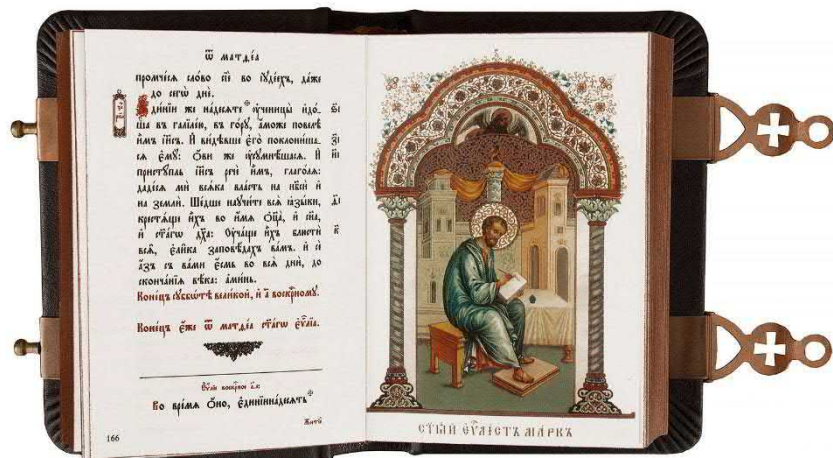 Ѿ матѳеа
промчеся слово сїе во їꙋдеехъ, даже
до сегѡ дне.
Єдинїи же надесяте ᲂученицы идо-
ша въ галїлею, въ горꙋ, аможе повеле
имъ і҆и҃съ. И видевше его поклониша-
ся емꙋ: ѻви же ᲂусꙋмнешася. И
приступль і҆и҃съ рече имъ, глаголя:
дадеся ми всяка власть на нб҃си и
на земли. Шедше научите вся языки,
крестяще ихъ во имя ѻц҃а, и сн҃а,
и ст҃агѡ дх҃а: Оучаще ихъ блюсти
вся, елика заповедахъ вамъ. и се
азъ съ вами есмь во вся дни, до
скончанїя века: аминь.
Конецъ сꙋббѡте великой, и а҃ воскрⷭ҇номꙋ.
Конецъ еже ѿ матѳеа ст҃агѡ еѵⷢ҇лїа.
Во время ѻно, единїинадесять
Житїѐ
166
СТ҃ЫЙ ЕѴⷢ҇ЛІСТЪ МАРКЪ